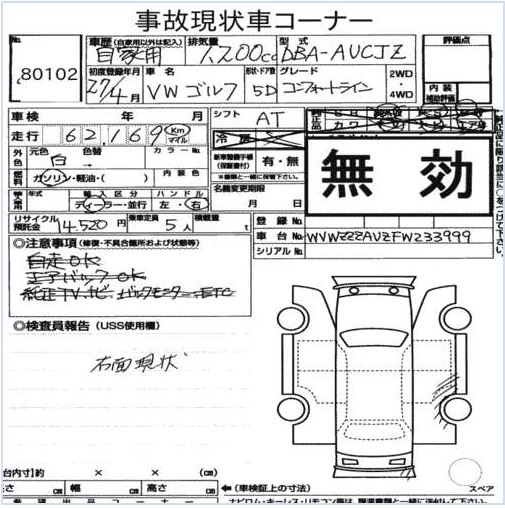 事故現状車コーナー
No. 80102
車歴 (自家用以外は記入) 自家用
排気量 1,200cc
型式 DBA-AUCJZ
評価点
初度登録年月 27/4月
車名 VWゴルフ
形状・ドア数 5D
グレード コンフォートライン
2WD
4WD
内装補助評価
車検 年 月
シフト AT
走行 62,169 Km マイル
冷房
無効
外色 元色 白 色替
カラーNo.
新車整備手帳(保証書付) 有・無
燃料 ガソリン・軽油・( )
内装色
名義変更期限 月 日
年式 輸入区分 ディーラー・並行
ハンドル 左・右
リサイクル預託金 14,520円
乗車定員 5人
積載量 t
登録No.
車台No. WVWZZZAUZFW233999
シリアルNo.
◎注意事項 (修復・不具合箇所および状態等)
自走OK
エアバックOK
純正TVナビ バックモニター ETC
◎検査員報告 (USS使用欄)
右面現状
台内寸)約 × × (cm)
長さ 幅 高さ (cm)
←(車検証上の寸法)
スペア